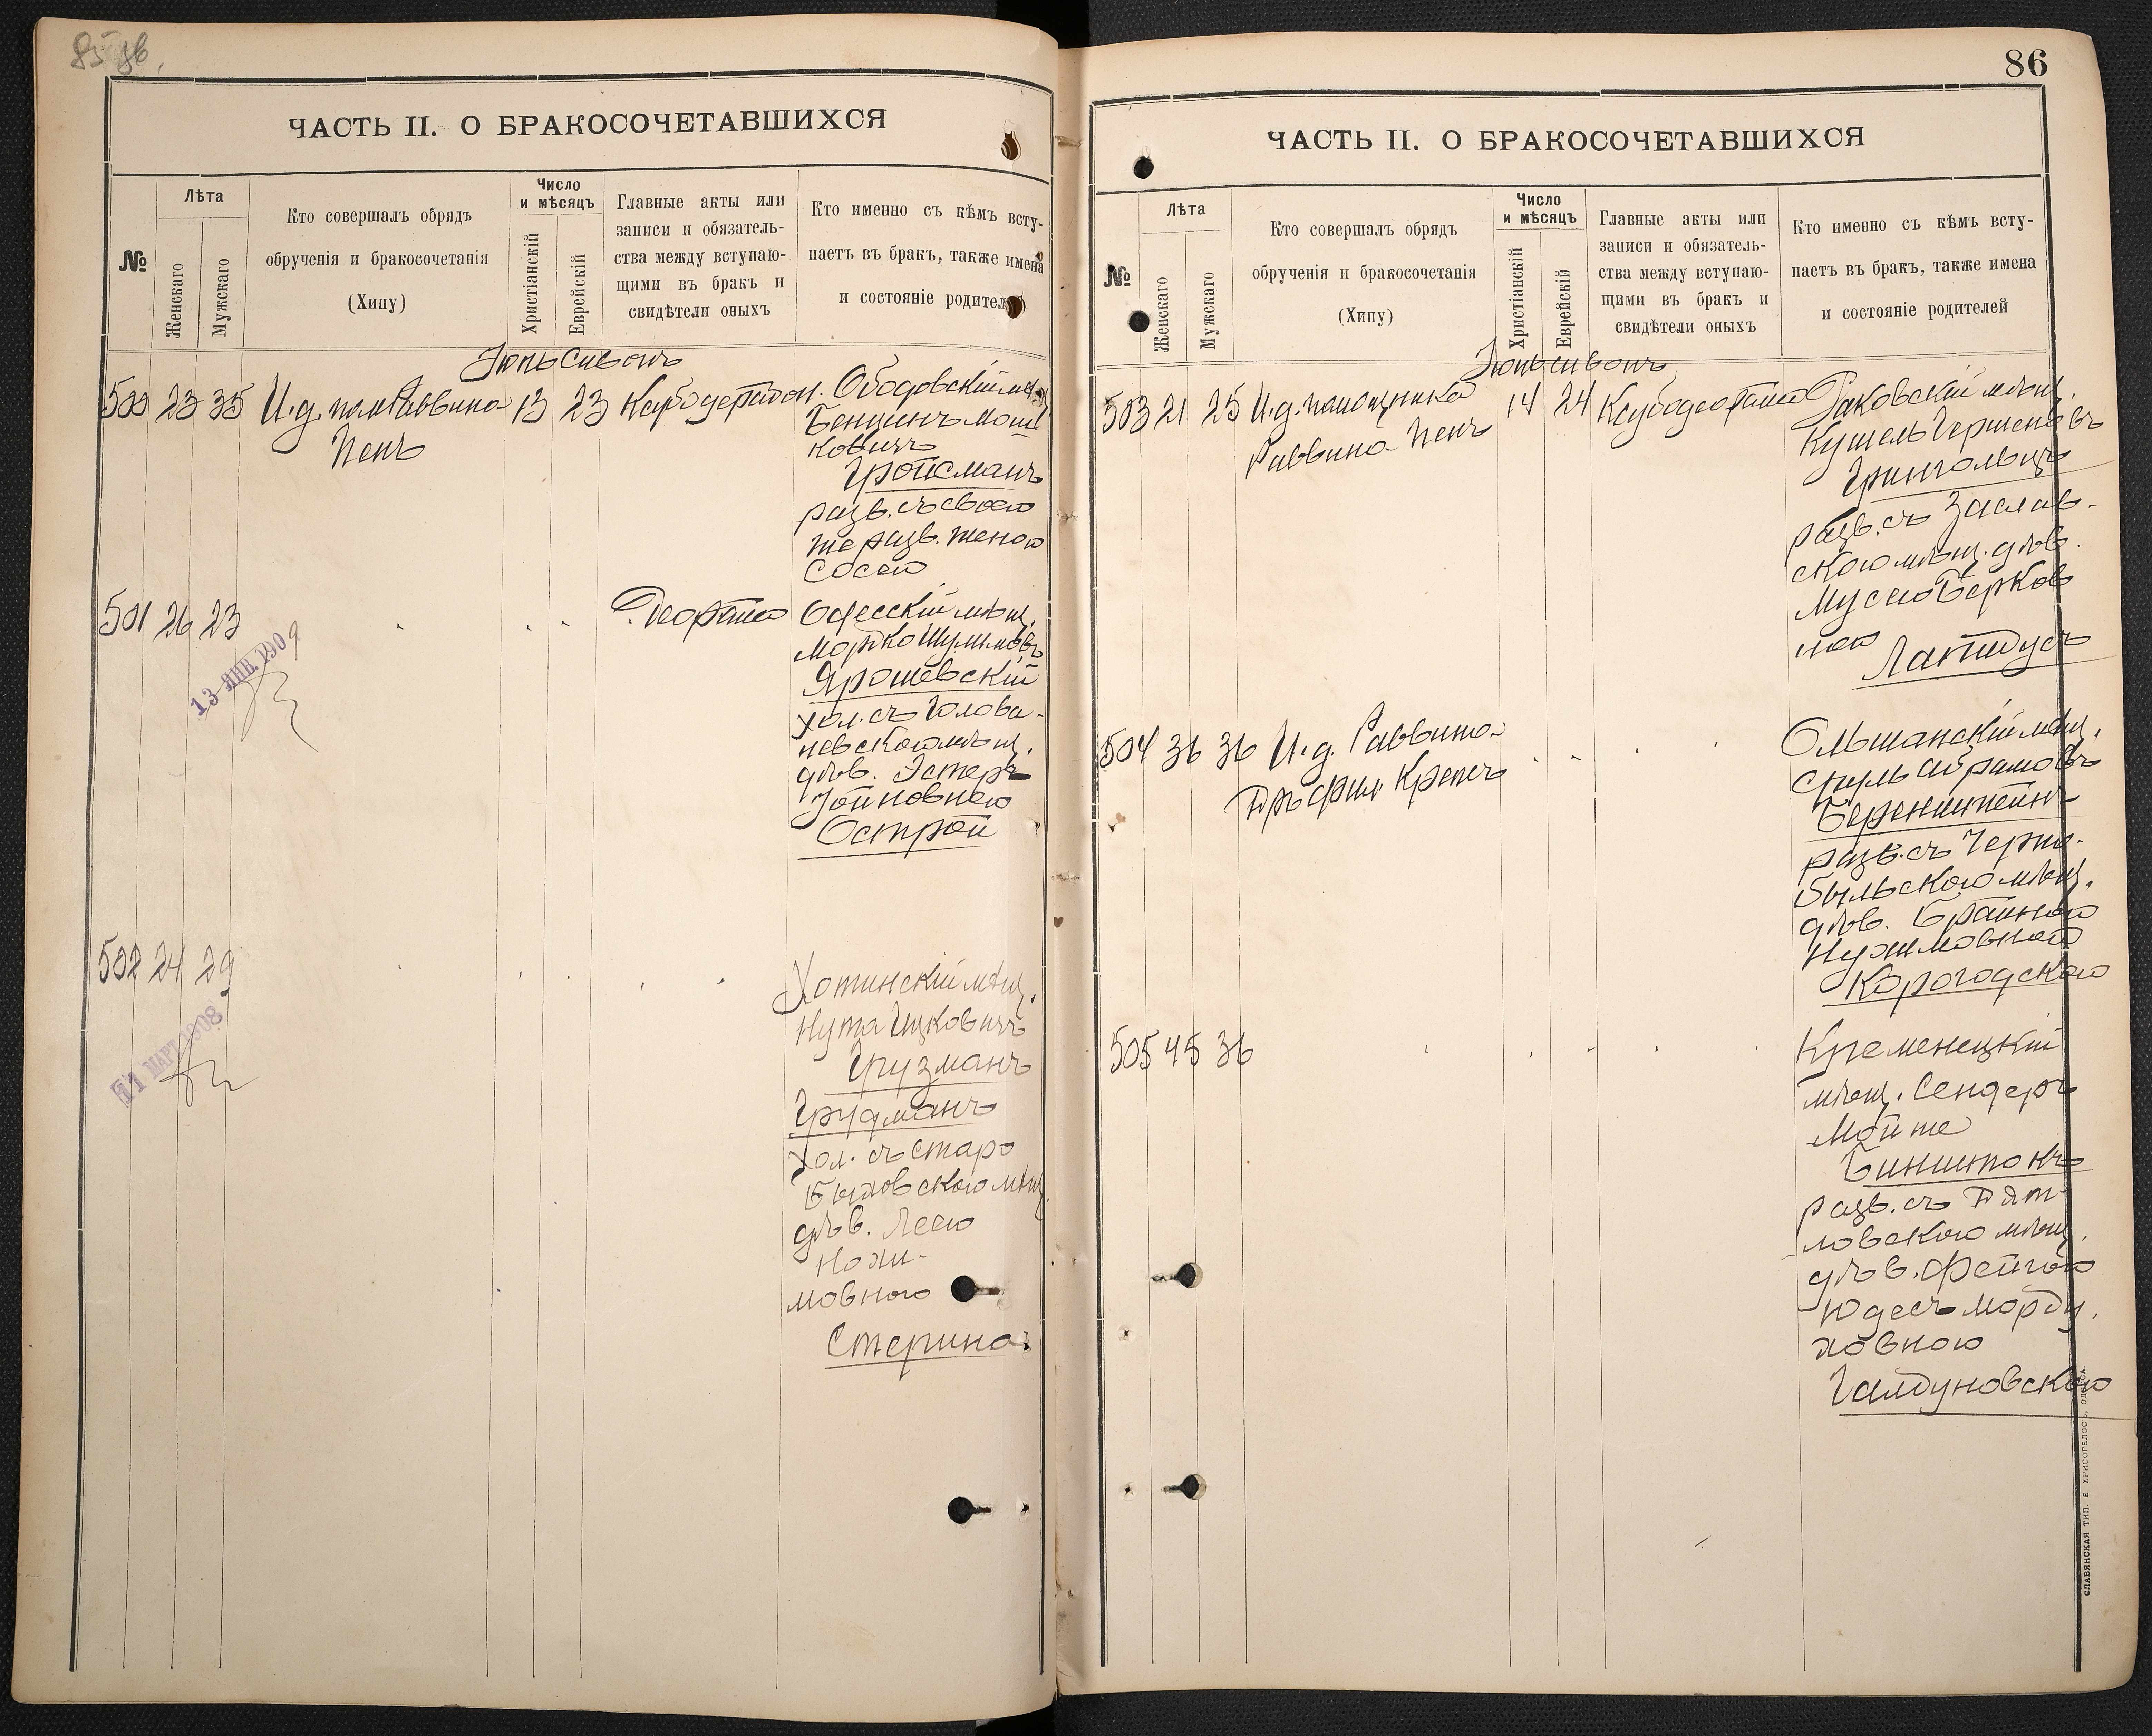 ЧАСТЬ II. О БРАКОСОЧЕТАВШИХСЯ
№
Лѣта
Женскаго
Мужскаго
Кто совершалъ обрядъ
обрученія и бракосочетанія
(Хипу)
Число
и мѣсяцъ
Христіанскій
Еврейскій
Главные акты или
записи и обязатель-
ства между вступаю-
щими въ бракъ и
свидѣтели оныхъ
Кто именно съ кѣмъ всту-
паетъ въ бракъ, также имена
и состояніе родителей
500 23 35 И.д. пом Раввина 13 23
Пенъ
Ободовскій мѣщ.
Бенціонъ Мош
ковичъ
Гройсманъ
разв. съ своею
же разв. женою
Сосею
501 26 23
13 ЯНВ. 1909
Одесскій мѣщ.
Мордко Шулимовъ
Ярошевскій
хол. съ Голова-
невскою мѣщ.
дѣв. Эстеръ
Зойновною
Острой
502 24 29
11 МАРТ 1908
Хотинскій мѣщ.
Нута Ицковичъ
Грузманъ
Грудманъ
хол. съ Старо
Быховскою мѣщ.
дѣв. Леею
Нохи-
мовною
Стерина
86
ЧАСТЬ II. О БРАКОСОЧЕТАВШИХСЯ
№
Лѣта
Женскаго
Мужскаго
Кто совершалъ обрядъ
обрученія и бракосочетанія
(Хипу)
Число
и мѣсяцъ
Христіанскій
Еврейскій
Главные акты или
записи и обязатель-
ства между вступаю-
щими въ бракъ и
свидѣтели оныхъ
Кто именно съ кѣмъ всту-
паетъ въ бракъ, также имена
и состояніе родителей
503 21 25 И.д. помощника 14 24
Раввина Пенъ
Раковскій мѣщ.
Кушель Гершоновъ
Грингольцъ
разв. съ Заслав-
скою мѣщ. дѣв.
Мусею Берков
ною
Лапидусъ
504 36 36 И.д. Раввина
Д-ръ фил. Крепсъ
Ольшанскій мѣщ.
Сруль Абрамовъ
Беренштейнъ
разв. съ Черно-
быльскою мѣщ.
дѣв. Брайною
Нухимовною
Корогодскою
505 45 36
Кременецкій
мѣщ. Сендеръ
Мойше
Бинштокъ
разв. съ Дят-
ловскою мѣщ.
дѣв. Фейгою
Юдесъ Морду.
ховною
Галдуновскою
СЛАВЯНСКАЯ ТИП. Е ХРИСОГЕЛОСЪ, ОДЕССА